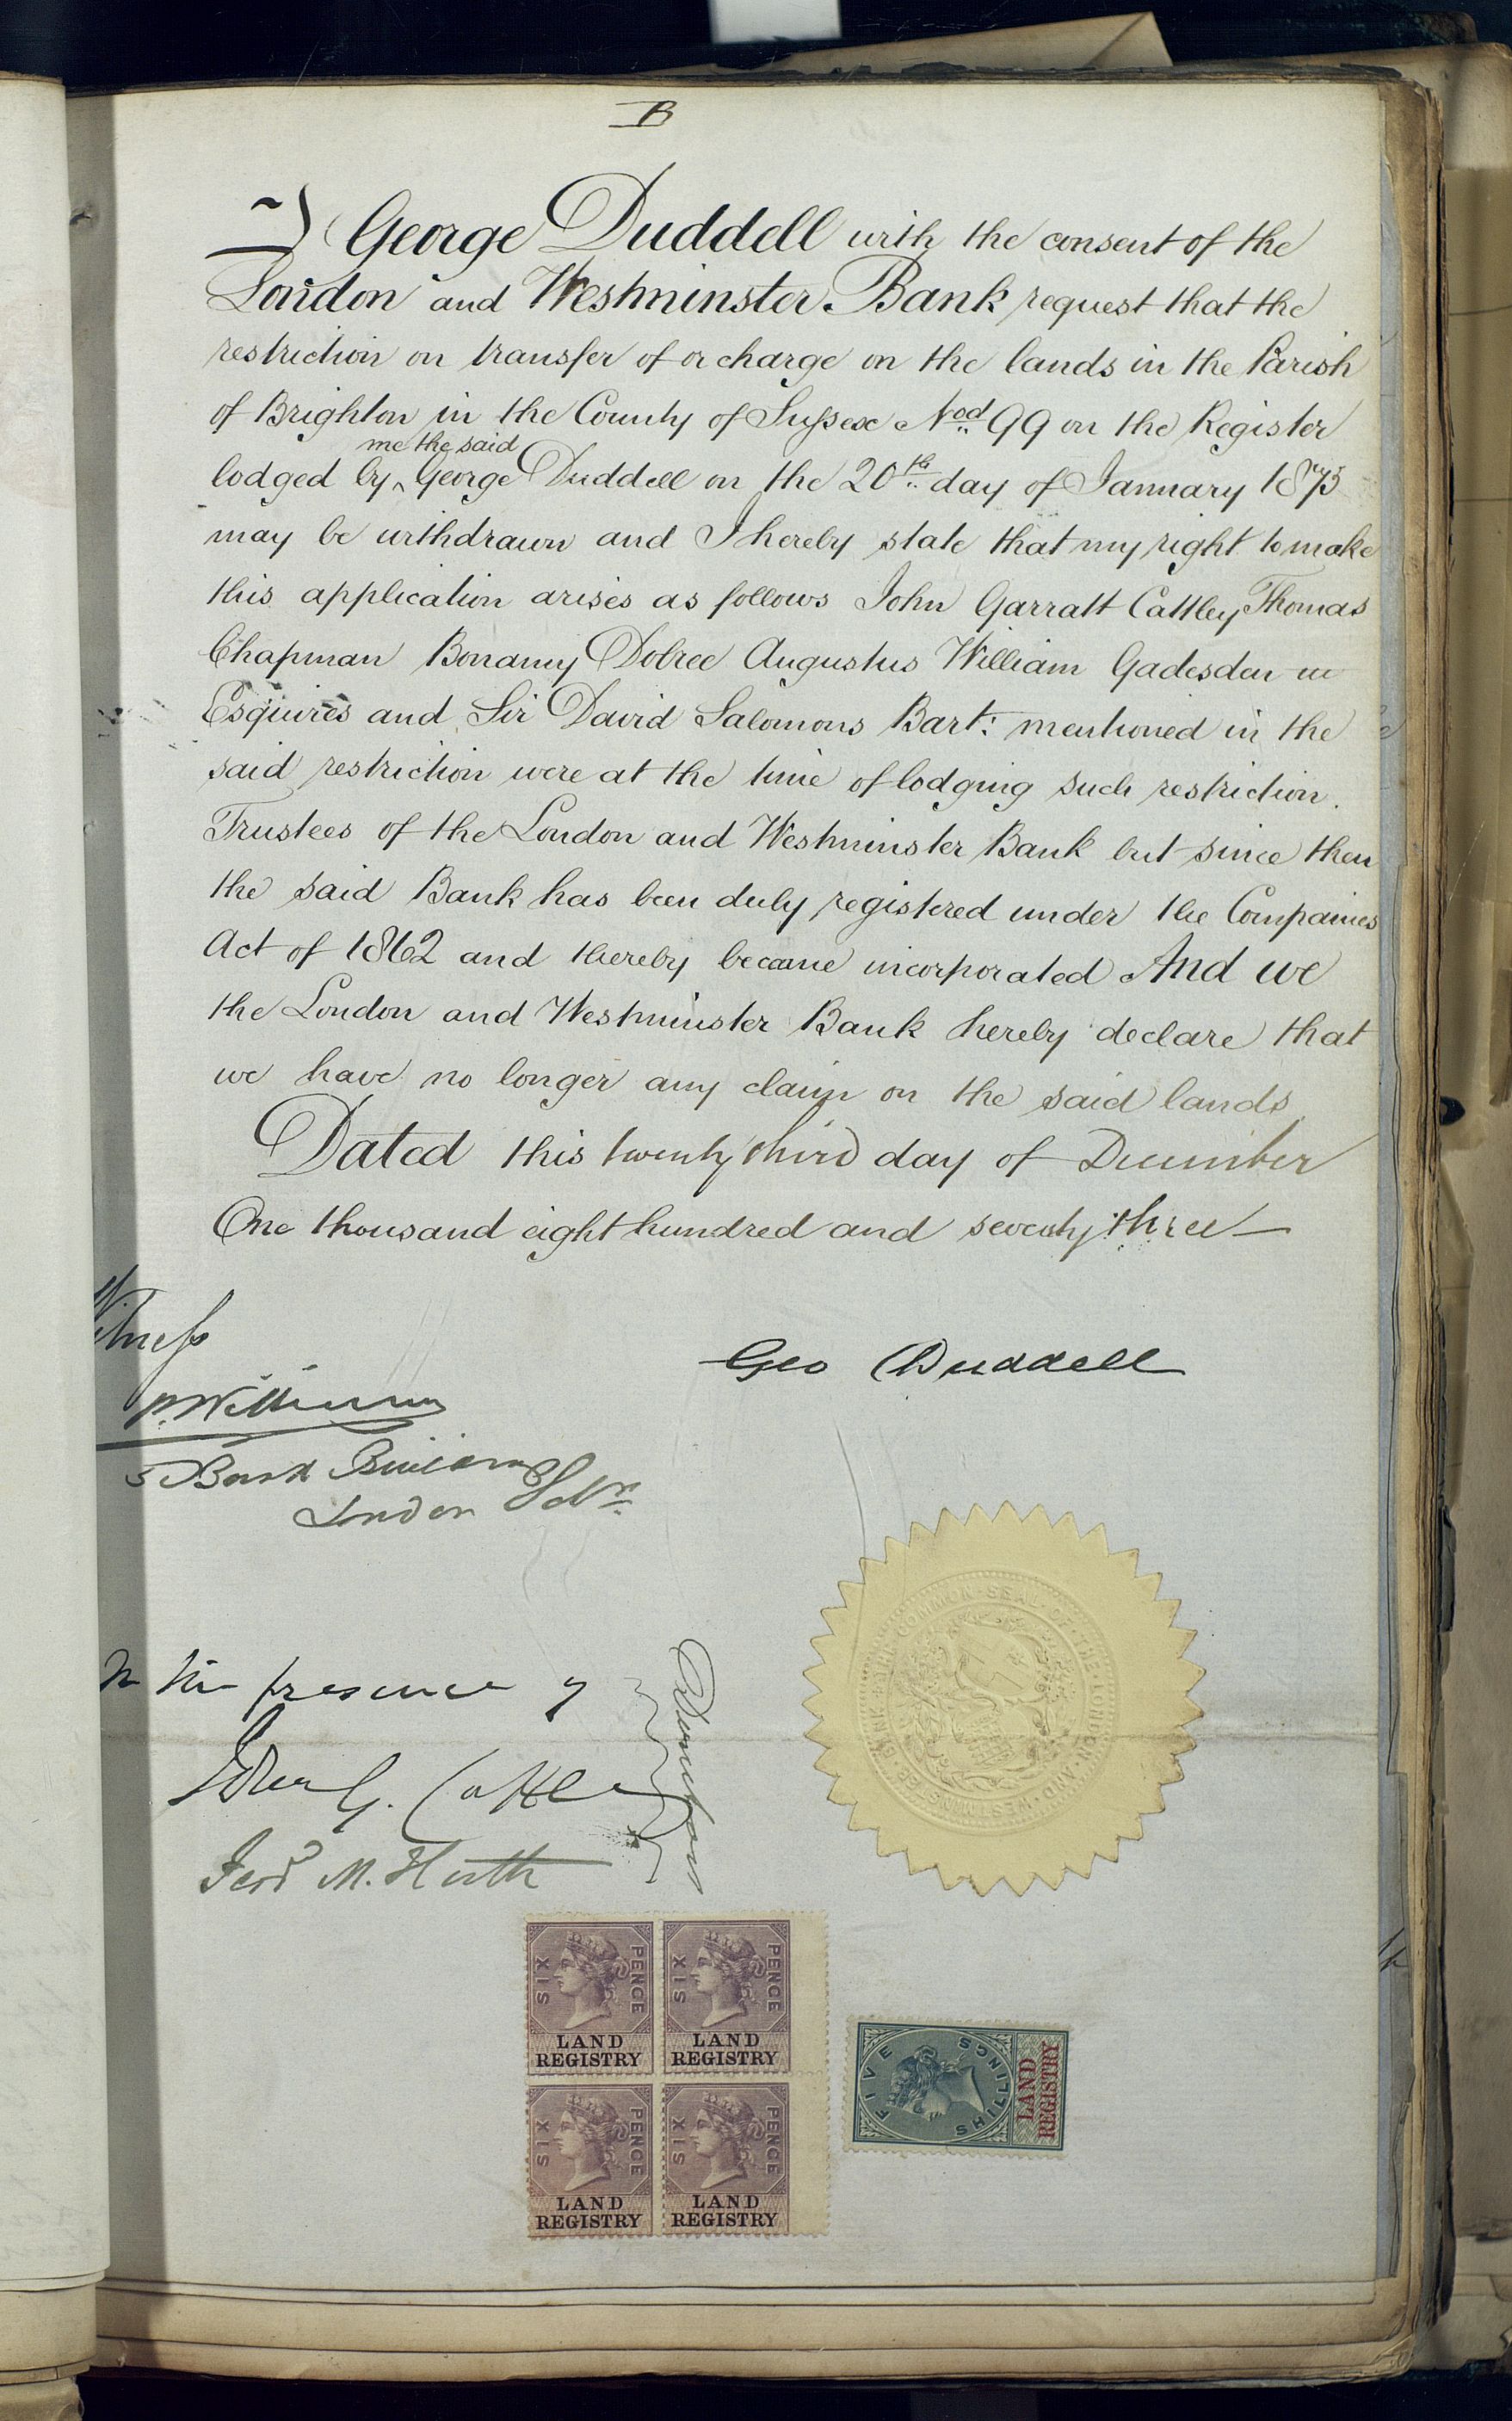 B
I George Duddell with the consent of the
London and Westminster Bank request that the
restriction on transfer of or charge on the lands in the Parish
of Brighton in the County of Sussex No.d 99 on the Register
me the said
lodged by ^ George Duddell on the 20th day of January 1873
may be withdrawn and I hereby state that my right to make
this application arises as follows John Garratt Cattley Thomas
Chapman Bonamy Dobree Augustus William Gadesden
Esquires and Sir David Salomons Bart: mentioned in the
said restriction were at the time of lodging such restriction.
Trustees of the London and Westminster Bank but since then
the said Bank has been duly registered under the Companies
Act of 1862 and thereby became incorporated And we
the London and Westminster Bank hereby declare that
we have no longer any claim on the said lands
Dated this twenty third day of December
One thousand eight hundred and seventy three
Witness
Geo Duddell
P. Williams
5 Bank Buildings
London Solr.
In the presence of
John G. Cattley
Fredk M. Huth
THE COMMON SEAL OF THE LONDON AND WESTMINSTER BANK
SIX PENCE
LAND
REGISTRY
SIX PENCE
LAND
REGISTRY
SIX PENCE
LAND
REGISTRY
SIX PENCE
LAND
REGISTRY
FIVE SHILLINGS
LAND
REGISTRY